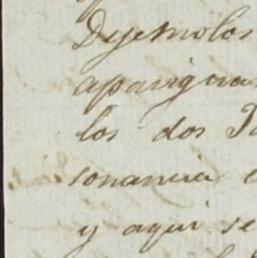 Dejemolos
apaciguar
los dos
sonancia
y aqui se